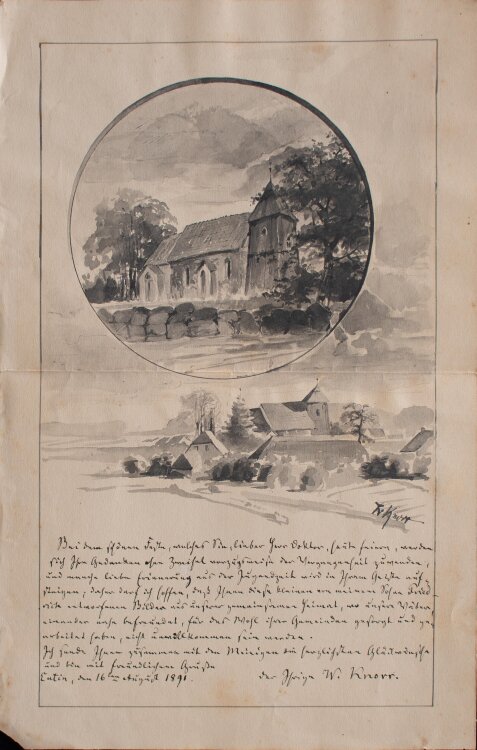 Fr. Knorr
Bei dem schönen Feste, welches Sie, lieber Herr Doktor, heute feiern, werden
sich Ihre Gedanken ohne Zweifel vorzugsweise der Vergangenheit zuwenden,
und manche liebe Erinnerung aus der Jugendzeit wird in Ihrem Geiste auf-
steigen, daher darf ich hoffen, daß Ihnen diese kleinen von meinem Sohne Fried-
rich entworfenen Bilder aus unserer gemeinsamen Heimat, wo unsere Väter,
einander nah befreundet, für das Wohl ihrer Gemeinden gesorgt und ge-
arbeitet haben, nicht unwillkommen sein werden.
Ich sende Ihnen zusammen mit den Meinigen die herzlichsten Glückwünsche
und bin mit freundlichen Grüßen
Eutin, den 16ten August 1891.
der Ihrige W. Knorr.